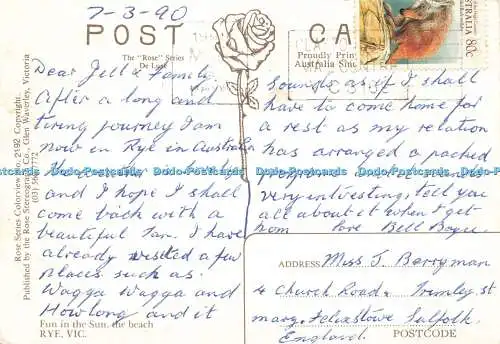 7-3-90
POST CA
The "Rose" Series
De Luxe
Proudly Prin
Australia Sin
AUSTRALIA 80c
Rose Series Colorview No. 2192. Copyright
Published by the Rose Stereograph Co., Glen Waverley, Victoria
Dear Jill & Family.
After a long and
tiring journey I am
now in Rye in Australia
and I hope I shall
come back with a
beautiful Tan. I have
already visited a few
places such as.
Wagga Wagga and
Howlong and it
sounds as if I shall
have to come home for
a rest as my relation
has arranged a packed
very interesting, tell you
all about it when I get
hom
Fun in the Sun, the beach
RYE, VIC.
ADDRESS
Miss J. Berryman
4 Church Road. Trimley St
Mary. Felixstowe Suffolk.
England.
POSTCODE
Postcards Dodo-Postcards Dodo-Postcards Dodo-Postcards Dodo-Postcards